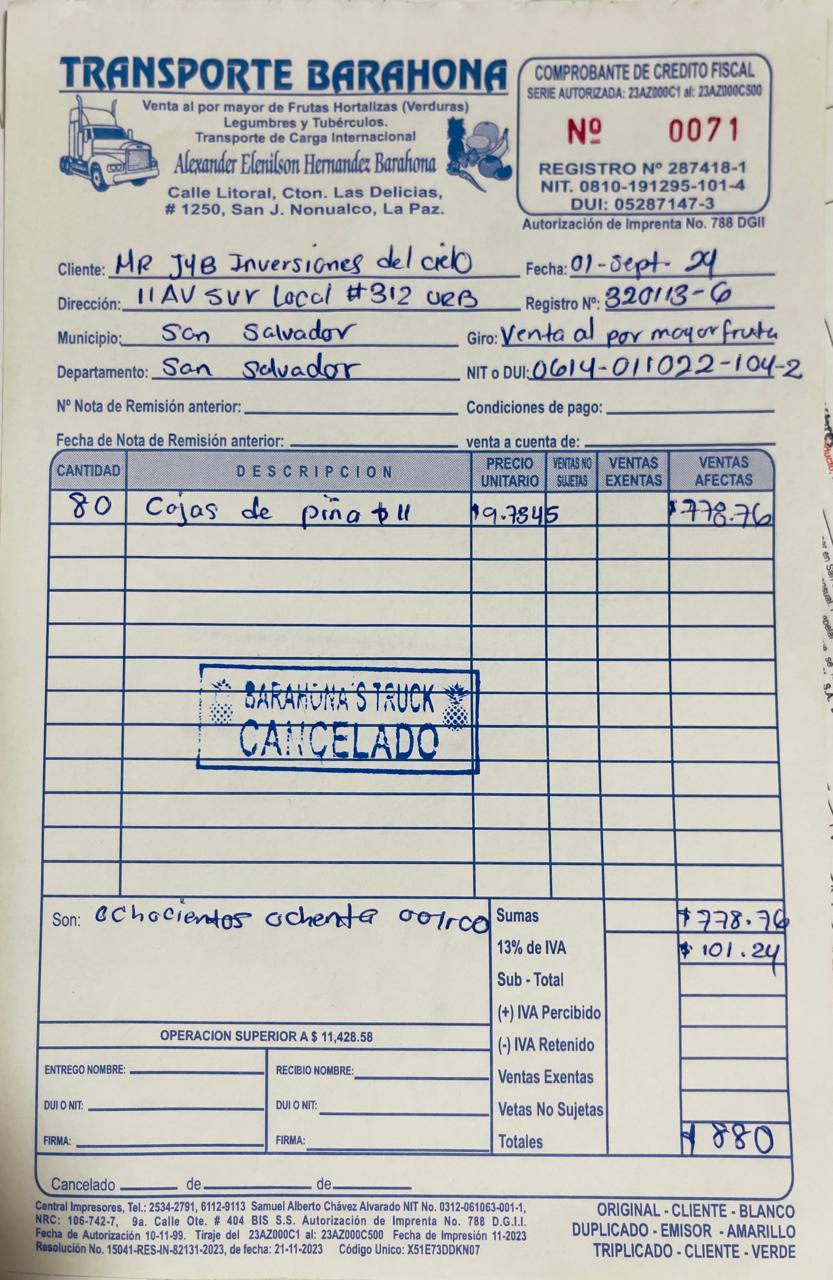 TRANSPORTE BARAHONA
Venta al por mayor de Frutas Hortalizas (Verduras)
Legumbres y Tubérculos.
Transporte de Carga Internacional
Alexander Elenilson Hernandez Barahona
Calle Litoral, Cton. Las Delicias,
# 1250, San J. Nonualco, La Paz.
COMPROBANTE DE CREDITO FISCAL
SERIE AUTORIZADA: 23AZ000C1 al: 23AZ000C500
Nº 0071
REGISTRO Nº 287418-1
NIT. 0810-191295-101-4
DUI: 05287147-3
Autorización de Imprenta No. 788 DGII
Cliente: MR J4B Inversiones del cielo Fecha: 01-Sept-24
Dirección: 11 AV SUr Local #312 URB Registro Nº: 320113-6
Municipio: San Salvador Giro: Venta al por mayor fruta
Departamento: San Salvador NIT o DUI: 0614-011022-104-2
Nº Nota de Remisión anterior: Condiciones de pago:
Fecha de Nota de Remisión anterior: venta a cuenta de:
CANTIDAD DESCRIPCION PRECIO UNITARIO VENTAS NO SUJETAS VENTAS EXENTAS VENTAS AFECTAS
80 Cajas de piña $11 $9.7345 $778.76
BARAHONA'S TRUCK
CANCELADO
Son: Ochocientos ochenta 00/100 Sumas $778.76
13% de IVA $101.24
Sub - Total
(+) IVA Percibido
(-) IVA Retenido
Ventas Exentas
Vetas No Sujetas
Totales $880
OPERACION SUPERIOR A $ 11,428.58
ENTREGO NOMBRE: RECIBIO NOMBRE:
DUI O NIT: DUI O NIT:
FIRMA: FIRMA:
Cancelado de de
Central Impresores, Tel.: 2534-2791, 6112-9113 Samuel Alberto Chávez Alvarado NIT No. 0312-061063-001-1,
NRC: 106-742-7, 9a. Calle Ote. # 404 BIS S.S. Autorización de Imprenta No. 788 D.G.I.I.
Fecha de Autorización 10-11-99. Tiraje del 23AZ000C1 al: 23AZ000C500 Fecha de Impresión 11-2023
Resolución No. 15041-RES-IN-82131-2023, de fecha: 21-11-2023 Código Unico: X51E73DDKN07
ORIGINAL - CLIENTE - BLANCO
DUPLICADO - EMISOR - AMARILLO
TRIPLICADO - CLIENTE - VERDE